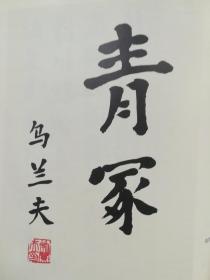 青冢
乌兰夫